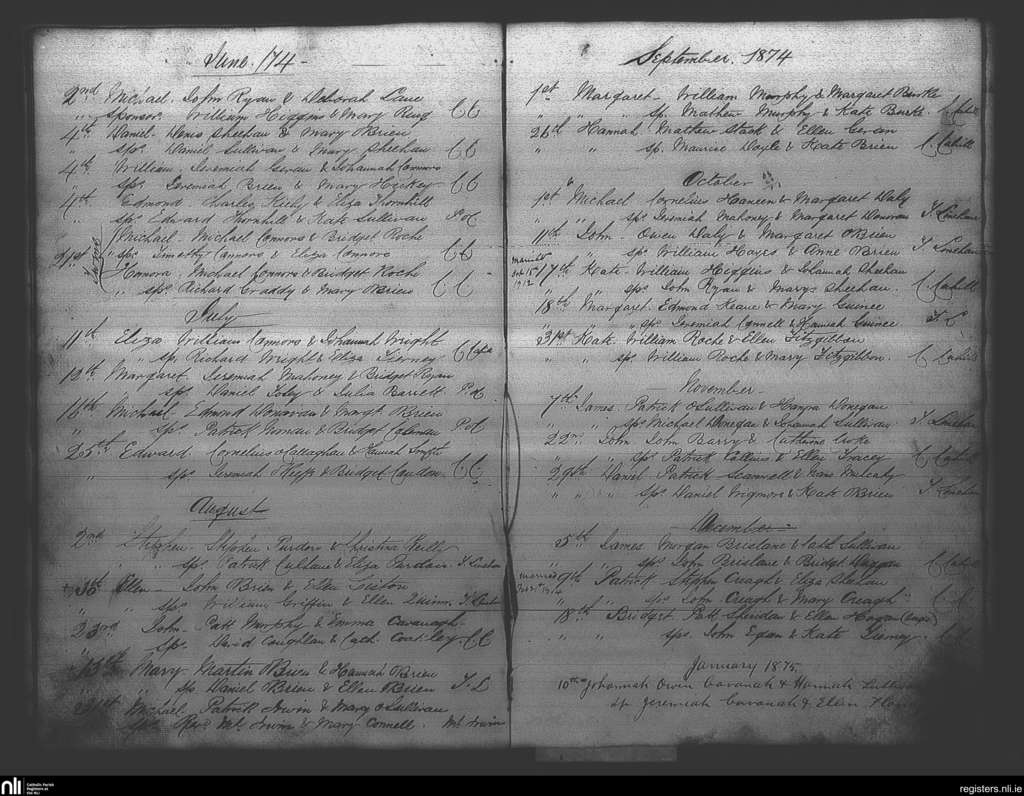 June /74 -
2nd Michael. John Ryan & Deborah Lane
" Sponsors. William Higgins & Mary Ring CC
4th Daniel. Denis Sheehan & Mary O'Brien
" sps. Daniel Sullivan & Mary Sheehan CC
4th William. Jeremiah & Johannah Connors
sps. Jeremiah Brien & Mary Hickey CC
4th Edmond Charles & Eliza Thornhill
" sps. Edward Thornhill & Kate Sullivan
Michael. Michael Connors & Bridget Roche
21st sps. Timothy Connors & Eliza Connors CC
Honora. Michael Connors & Bridget Roche
" sps. Richard Graddy & Mary O'Brien CC
July
11th Eliza William Connors & Johannah Wright
" sp. Richard Wright & Eliza Tierney
12th Margaret. Jeremiah Mahoney & Bridget Ryan
sps. Daniel & Julia Barrett
16th Michael. Edmond Donovan & Margt. Brien
" sps. Patrick & Bridget Coleman
25th Edward Cornelius O'Callaghan & Hannah
" sps. Jeremiah & Bridget Condon CC
August
2nd Stephen. Stephen Purdon & Christina Reilly
" sps. Patrick Cullane & Eliza T. Linehan
Ellen - John Brien & Ellen
" sps. William Griffin & Ellen Quinn
23rd John - Patt Murphy & Emma Cavanagh
" sp. David Coughlan & Cath. Coakley CC
Mary. Martin O'Brien & Hannah O'Brien
" sp. Daniel O'Brien & Ellen O'Brien T. L
31st Michael Patrick Irwin & Mary O'Sullivan
sps. Revd. Mt. Irwin & Mary Connell. Mt. Irwin
September. 1874
1st Margaret - William Murphy & Margaret Burke
" " sp. Mathew Murphy & Kate Burke C. Cahill
26th Hannah. Mathew Stack & Ellen
" " sp. Maurice Doyle & Kate Brien C. Cahill
October
1st Michael Cornelius & Margaret Daly
" sps. Jeremiah Mahoney & Margaret Donovan T. Linehan
11th John. Owen Daly & Margaret O'Brien
" " sp. William Hayes & Anne Brien T. Linehan
married
17th Kate. William Higgins & Johannah Sheehan
1912
" " sps. John Ryan & Mary Sheehan. C. Cahill
18th Margaret. Edmond Keane & Mary Guinee
" " sps. Jeremiah Connell & Hannah Guinee
31st Kate William Roche & Ellen Fitzgibbon
" " sp. William Roche & Mary Fitzgibbon. C. Cahill
November -
7th James. Patrick O'Sullivan & Donegan
" sps. Michael Donegan & Johannah Sullivan T. Linehan
22nd John John Barry & Catherine
" " sp. Patrick Collins & Ellen Tracey C. Cahill
29th Daniel Patrick Scannell & Mulcahy
" " sps. Daniel Wigmore & Kate O'Brien T. Linehan
December -
5th James Morgan Brislane & Cath Sullivan
" " sps. John Brislane & Bridget Duggan C. Cahill
married
9th Patrick Stephen Creagh & Eliza
" " sps. John Creagh & Mary Creagh C. C.
18th Bridget. Patt Sheridan & Ellen Hogan
" " sps. John Egan & Kate Tierney.
January 1875
10th Johannah Owin Cavanah & Hannah
sp. Jeremiah Cavanah & Ellen
nli
Catholic Parish
Registers at
the NLI
registers.nli.ie